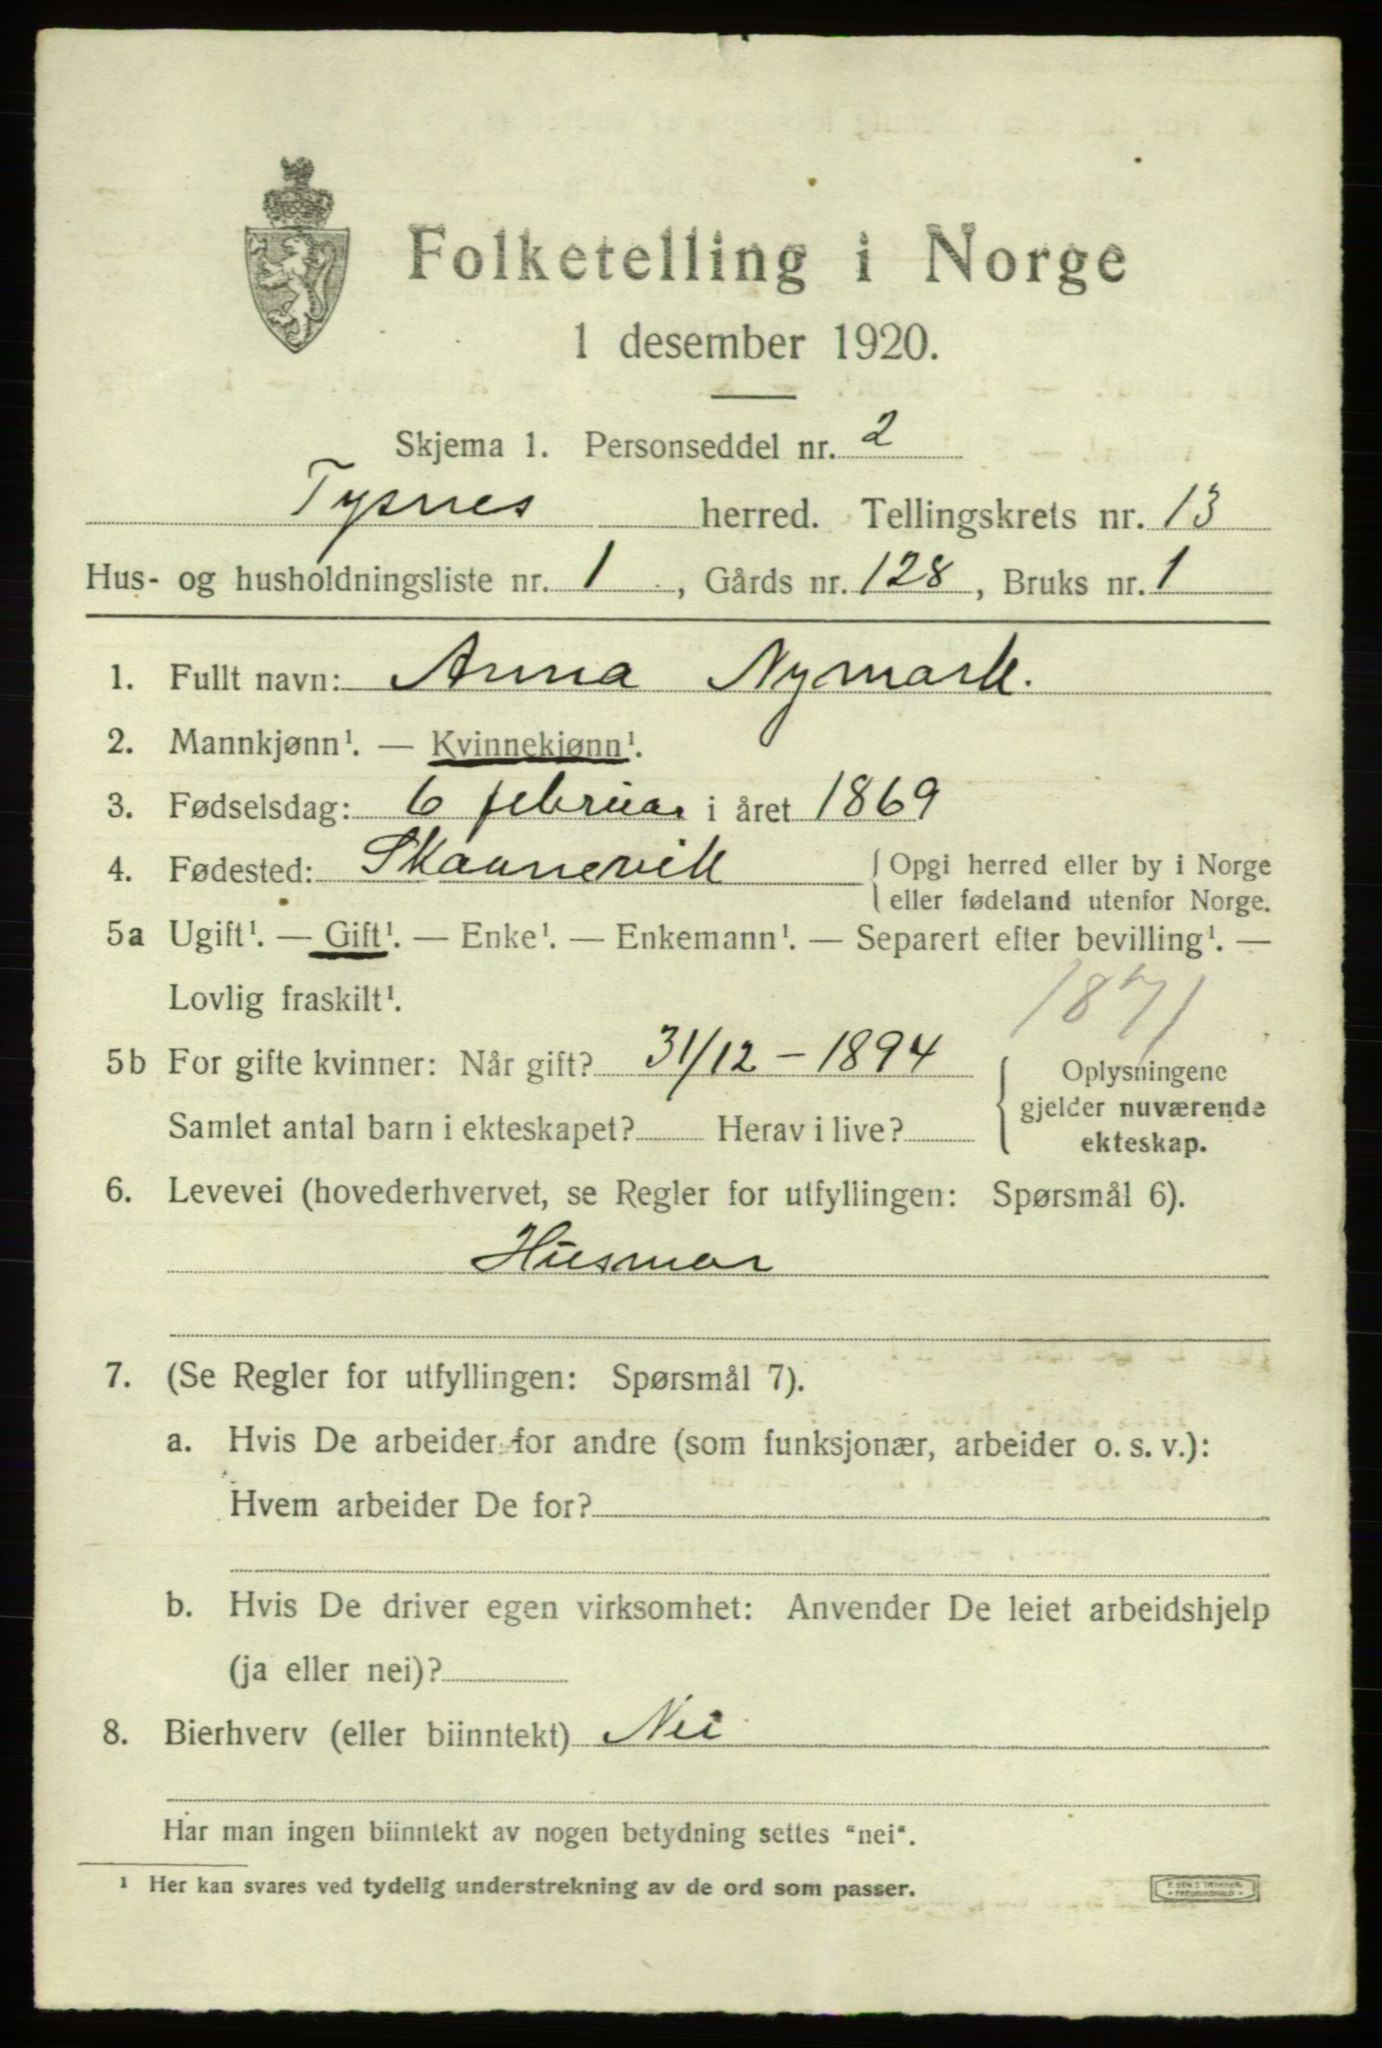 Folketelling i Norge
1 desember 1920.
Skjema 1. Personseddel nr. 2
Tysnes herred. Tellingskrets nr. 13
Hus- og husholdningsliste nr. 1, Gårds nr. 128, Bruks nr. 1
1. Fullt navn: Anna Nymark.
2. Mannkjønn¹. — Kvinnekjønn¹.
3. Fødselsdag: 6 februar i året 1869
4. Fødested: Skaanevik {Opgi herred eller by i Norge
eller fødeland utenfor Norge.
5a Ugift¹. — Gift¹. — Enke¹. — Enkemann¹. — Separert efter bevilling¹. —
Lovlig fraskilt¹.
1871
5b For gifte kvinner: Når gift? 31/12 – 1894
Samlet antal barn i ekteskapet? Herav i live?
Oplysningene
gjelder nuværende
ekteskap.
6. Levevei (hovederhvervet, se Regler for utfyllingen: Spørsmål 6).
Husmor
7. (Se Regler for utfyllingen: Spørsmål 7).
a. Hvis De arbeider for andre (som funksjonær, arbeider o. s. v.):
Hvem arbeider De for?
b. Hvis De driver egen virksomhet: Anvender De leiet arbeidshjelp
(ja eller nei)?
8. Bierhverv (eller biinntekt) Nei
Har man ingen biinntekt av nogen betydning settes "nei".
¹ Her kan svares ved tydelig understrekning av de ord som passer.